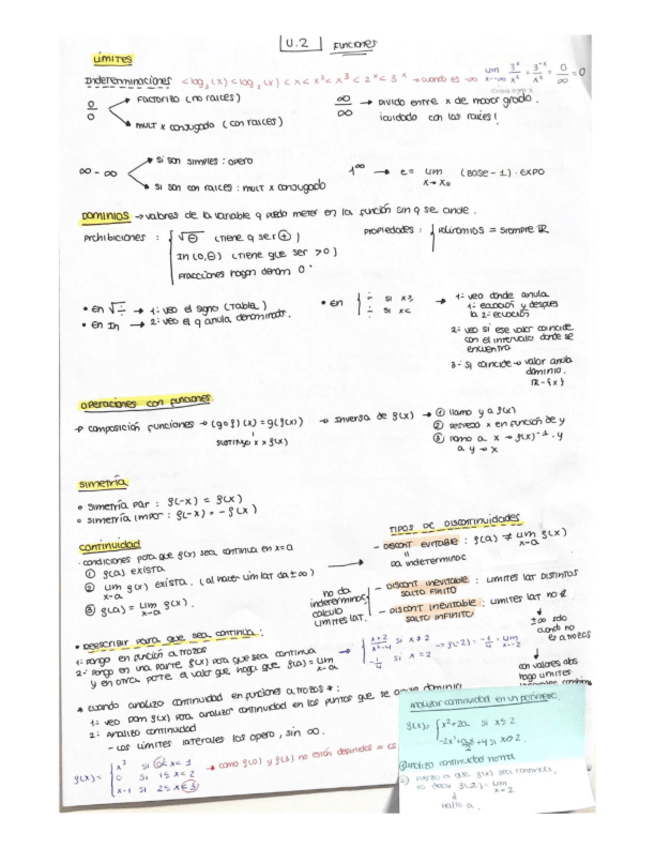 U.2 Funciones
LÍMITES
Indeterminaciones < log₃(x) < log₂(x) < x < x² < x³ < 2ˣ < 3ˣ → cuando es -∞ lim x→-∞ 3ˣ/x² = 3⁻ˣ/x² = 0/∞ = 0
0/0 → Factorizo (no raíces)
→ mult x conjugado (con raíces)
∞/∞ → Divido entre x de mayor grado.
¡cuidado con las raíces!
∞ - ∞ → si son simples: opero
→ si son con raíces: mult x conjugado
1^∞ → e = lim x→x₀ (Base - 1) · EXPO
DOMINIOS → valores de la variable q puedo meter en la función sin q se anule.
Prohibiciones: √⊖ (tiene q ser ⊕)
ln (0,⊖) (tiene que ser >0)
Fracciones hagan denom 0
Propiedades: Polinomios = siempre ℝ
• en √÷ → 1º veo el signo (tabla)
• en ln → 2º veo el q anula denominador.
• en { ÷ si x≥
÷ si x<
→ 1º veo donde anula
1ª ecuación y después
la 2ª ecuación
2º veo si ese valor coincide
con el intervalo donde se
encuentra
3º si coincide → valor anula
dominio.
ℝ-{x}
operaciones con funciones
→ composición funciones → (g∘f)(x) = g(f(x))
sustituyo x x f(x)
→ Inversa de f(x) → ① llamo y a f(x)
② despejo x en función de y
③ llamo a x → f(x)⁻¹ · y
a y → x
simetría
• simetría par: f(-x) = f(x)
• simetría impar: f(-x) = -f(x)
continuidad
· condiciones para que f(x) sea continua en x=a
① f(a) exista
② lim x→a f(x) exista. (al hacer lim lat da ±∞)
③ f(a) = lim x→a f(x).
TIPOS DE DISCONTINUIDADES
- DISCONT EVITABLE: f(a) ≠ lim x→a f(x)
da indeterminac
no da
indeterminac
calculo
límites lat.
- DISCONT INEVITABLE: LIMITES LAT DISTINTOS
SALTO FINITO
- DISCONT INEVITABLE: LIMITES LAT NO ∄
SALTO INFINITO
±∞ solo
cuando no
es a trozos
con valores abs
hago limites
• Reescribir para que sea continua:
1º pongo en función a trozos
2º pongo en una parte f(x) para que sea continua
y en otra parte el valor que haga que f(a) = lim x→a
{ x+2/x²-4 si x≠2 → f(-2) = -1/4 = lim x→-2
-1/4 si x=2
* cuando analizo continuidad en funciones a trozos *:
1º veo dom f(x) para analizar continuidad en los puntos que se dominio
2º analizo continuidad
- los límites laterales los opero, sin ∞.
f(x) = { x² si 0<x<1
0 si 1≤x<2
x-1 si 2≤x<3
→ como f(0) y f(3) no están definidos =
Analizar continuidad en un parámetro
f(x) = { x²+2a si x≤2
① Analizo continuidad normal
② Fuerzo a que f(x) sea continua,
es decir f(2) = lim x→2
hallo a.